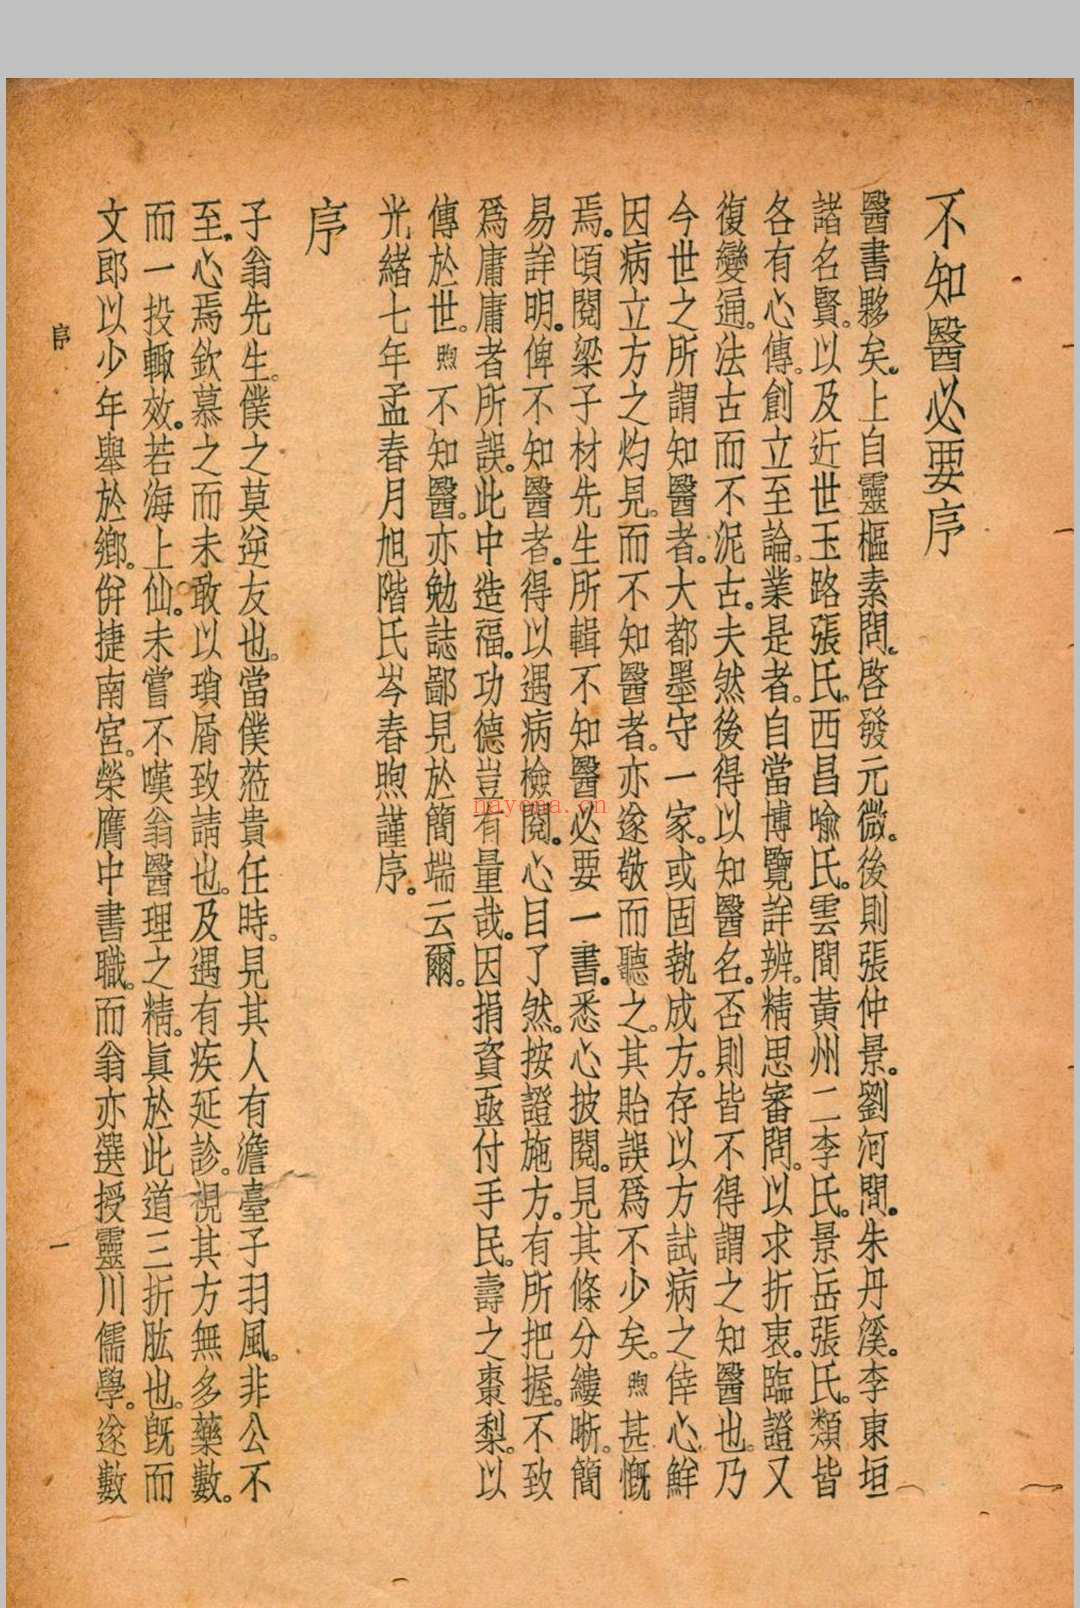 不知醫必要序
醫書夥矣。上自靈樞素問。啓發元微。後則張仲景。劉河間。朱丹溪。李東垣
諸名賢。以及近世玉路張氏。西昌喻氏。雲間黃州二李氏。景岳張氏。類皆
各有心傳。創立至論。業是者。自當博覽詳辨。精思審問。以求折衷。臨證又
復變通。法古而不泥古。夫然後得以知醫名。否則皆不得謂之知醫也。乃
今世之所謂知醫者。大都墨守一家。或固執成方。存以方試病之倖心。鮮
因病立方之灼見。而不知醫者。亦遂敬而聽之。其貽誤爲不少矣。煦甚慨
焉。頃閱梁子材先生所輯不知醫必要一書。悉心披閱。見其條分縷晰。簡
易詳明。俾不知醫者。得以遇病檢閱。心目了然。按證施方。有所把握。不致
爲庸庸者所誤。此中造福。功德豈有量哉。因捐資亟付手民。壽之棗梨。以
傳於世。煦不知醫。亦勉誌鄙見於簡端云爾。
光緒七年孟春月旭階氏岑春煦謹序。
序
子翁先生。僕之莫逆友也。當僕蒞貴任時。見其人有澹臺子羽風。非公不
至。心焉欽慕之而未敢以瑣屑致請也。及遇有疾延診。視其方無多藥數。
而一投輙效。若海上仙。未嘗不嘆翁醫理之精。眞於此道三折肱也。旣而
文郎以少年舉於鄉。倂捷南宮。榮膺中書職。而翁亦選授靈川儒學。遂數
序
一
nayona.cn